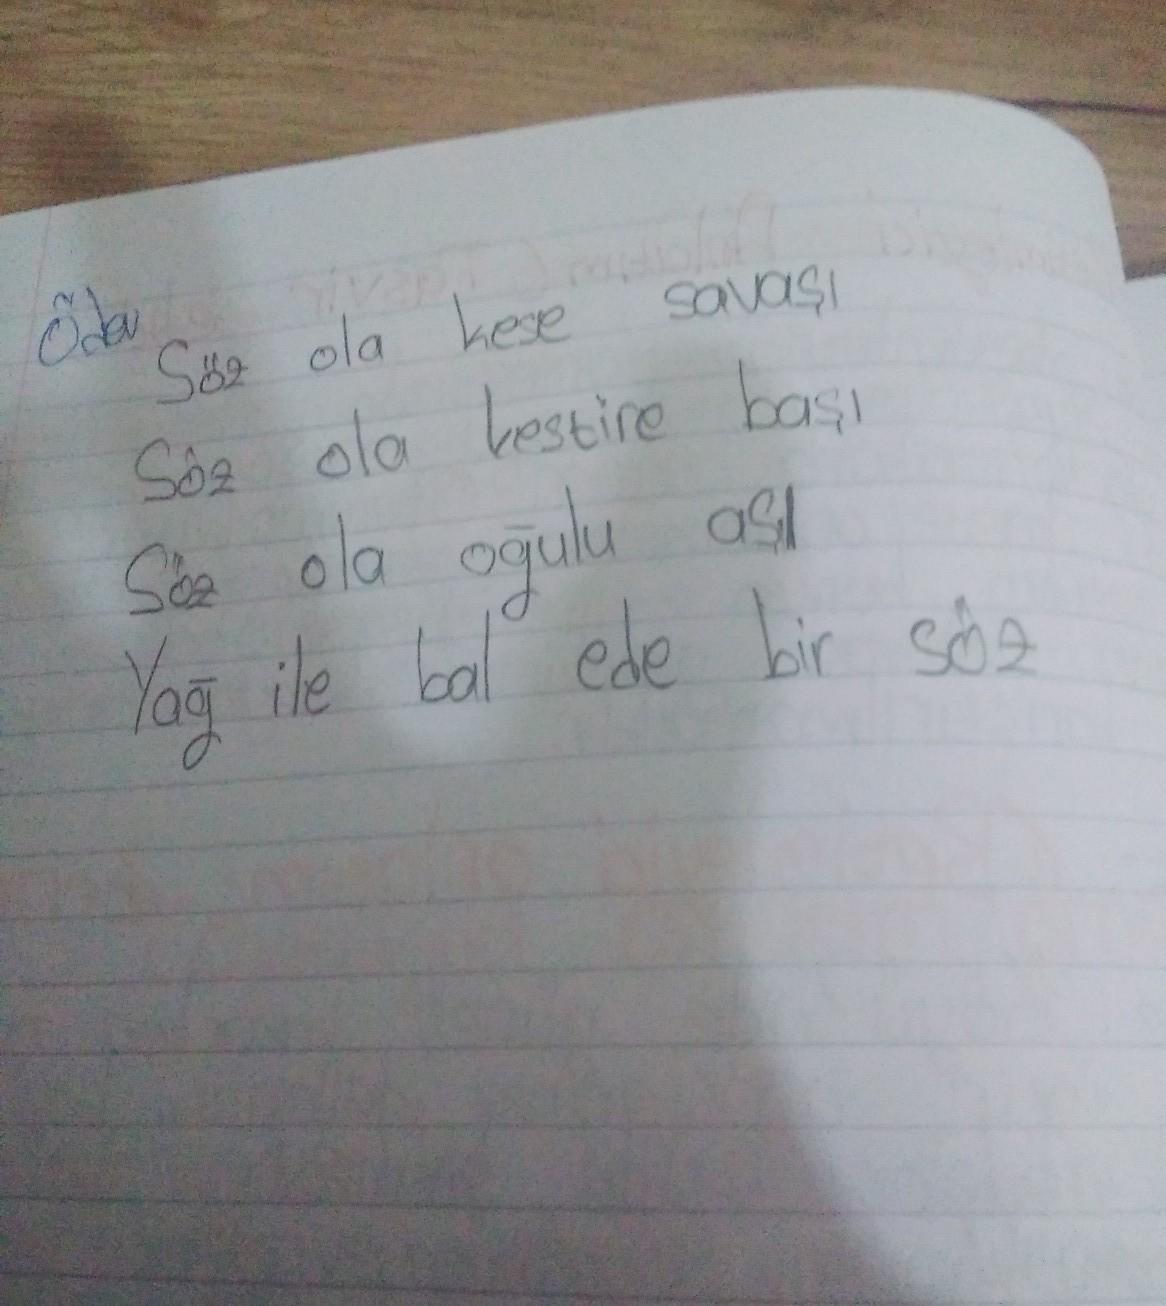 Ödev
Söz ola kese savaşı
Söz ola kestire başı
Söz ola oğulu aşı
Yağ ile bal ede bir söz